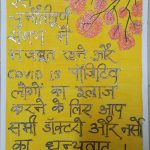 इस
चुनौतीपूर्ण
समय में
मजबूत रहने और
COVID 19 पॉजिटिव
लोगों का इलाज
करने के लिए आप
सभी डॉक्टरों और नर्सों
का धन्यवाद !